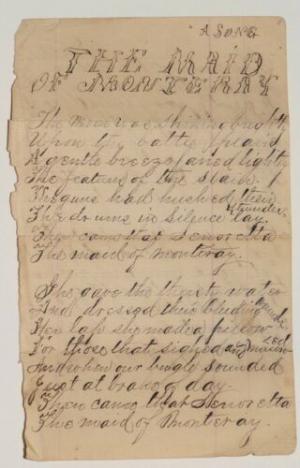 A SONG
THE MAID
OF MONTERAY
The moon was shining brightly
Upon the battle plain
A gentle breeze faned lightly
The features of the slain
The guns had hushed their
thunder
The drums in silence lay
Then came that Senoretta
The maid of Monteray.
She gave the thirsty water
And dressed their bleeding
wounds
Her lap she made a pillow
For those that sighed and
And when our bugle sounded
Just at brake of day
Then came that Senoretta
The maid of Monteray.